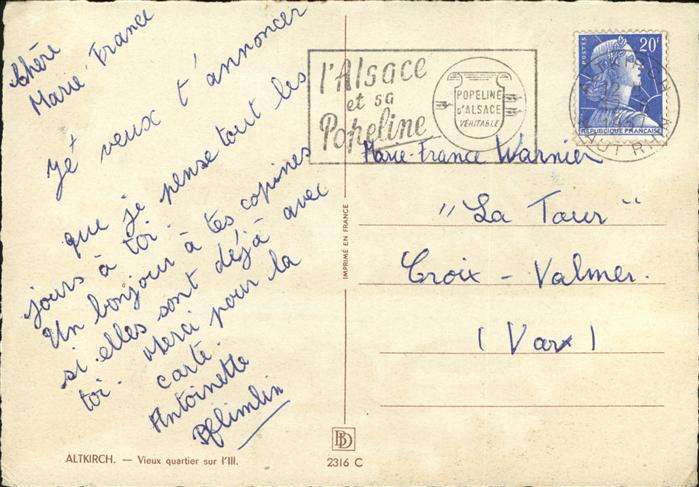 Chère
Marie-France
Je veux t'annoncer
que je pense tout les
jours à toi.
Un bonjour à tes copines
si elles sont déjà avec
toi. Merci pour la
carte.
Antoinette
Pflimlin
l'Alsace
et sa
Popeline
POPELINE
D'ALSACE
VÉRITABLE
POSTES
20F
RÉPUBLIQUE FRANÇAISE
HAUT RHIN
Marie-France Warnier
"La Tour"
Croix-Valmer.
(Var)
IMPRIMÉ EN FRANCE
BD
ALTKIRCH. — Vieux quartier sur l'Ill.
2316 C